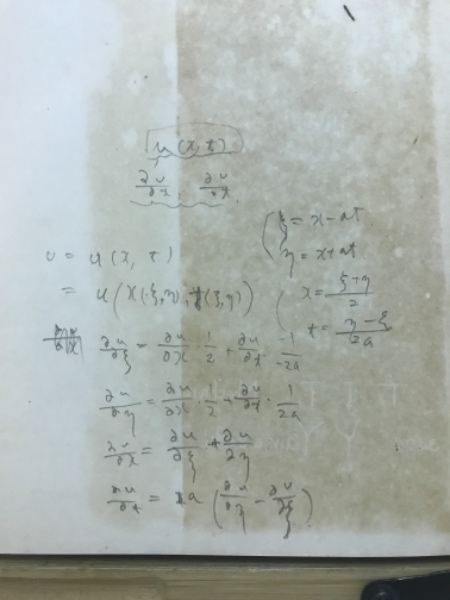 u(x,t)
∂u/∂x, ∂u/∂t.
ξ = x-at
η = x+at
u = u(x, t)
= u(x(ξ,η), t(ξ,η))
x = (ξ+η)/2
t = (η-ξ)/2a
∂u/∂ξ = ∂u/∂x · 1/2 + ∂u/∂t · -1/2a
∂u/∂η = ∂u/∂x · 1/2 + ∂u/∂t · 1/2a
∂u/∂x = ∂u/∂ξ + ∂u/∂η
∂u/∂t = a(∂u/∂η - ∂u/∂ξ)